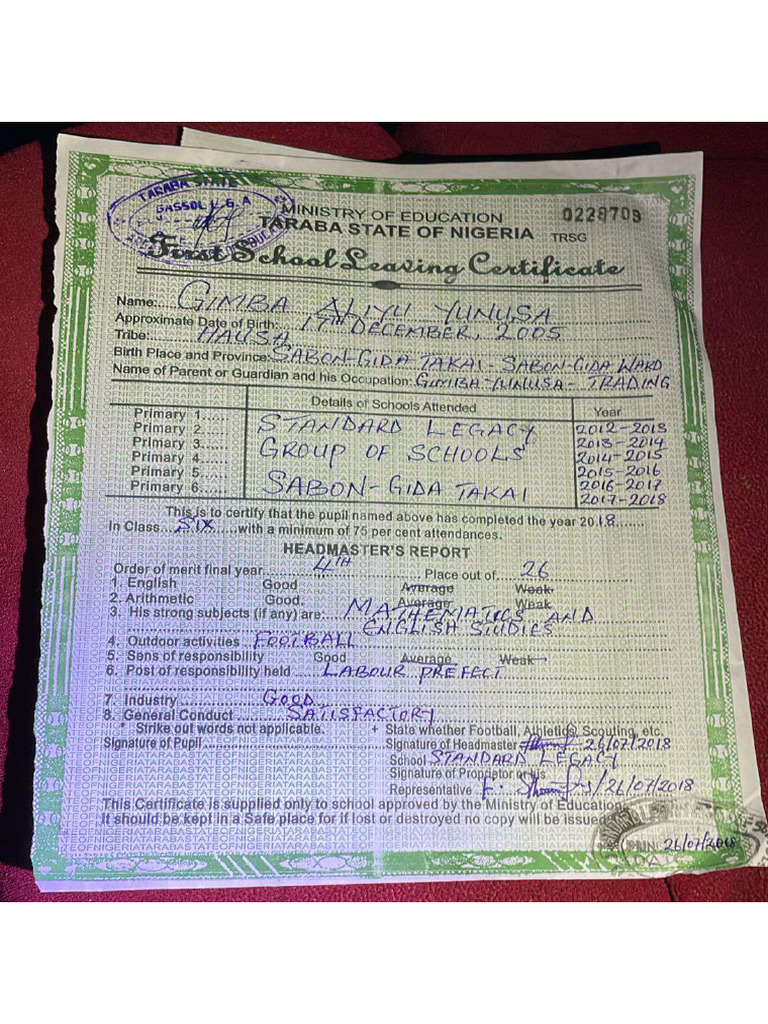 TARABA STATE
GASSOL L.G.A
MINISTRY OF EDUCATION
0229709
TARABA STATE OF NIGERIA TRSG
First School Leaving Certificate
Name: GIMBA ALIYU YUNUSA
Approximate Date of Birth: 17TH DECEMBER, 2005
Tribe: HAUSA
Birth Place and Province: SABON-GIDA TAKAI - SABON-GIDA WARD
Name of Parent or Guardian and his Occupation: GIMBA YUNUSA - TRADING
Details of Schools Attended Year
Primary 1 2012-2013
Primary 2 STANDARD LEGACY 2013-2014
Primary 3 GROUP OF SCHOOLS 2014-2015
Primary 4 2015-2016
Primary 5 SABON-GIDA TAKAI 2016-2017
Primary 6 2017-2018
This is to certify that the pupil named above has completed the year 2018
In Class SIX with a minimum of 75 per cent attendances.
HEADMASTER'S REPORT
Order of merit final year 4TH Place out of 26
1. English Good Average Weak
2. Arithmetic Good Average Weak
3. His strong subjects (if any) are: MATHEMATICS AND
ENGLISH STUDIES
4. Outdoor activities FOOTBALL
5. Sens of responsibility Good Average Weak
6. Post of responsibility held LABOUR PREFECT
7. Industry GOOD
8. General Conduct SATISFACTORY
* Strike out words not applicable. + State whether Football, Athletics, Scouting, etc.
Signature of Pupil Signature of Headmaster 26/07/2018
School STANDARD LEGACY
Signature of Proprietor or his
Representative 26/07/2018
This Certificate is supplied only to school approved by the Ministry of Education
It should be kept in a Safe place for if lost or destroyed no copy will be issued
26/07/2018